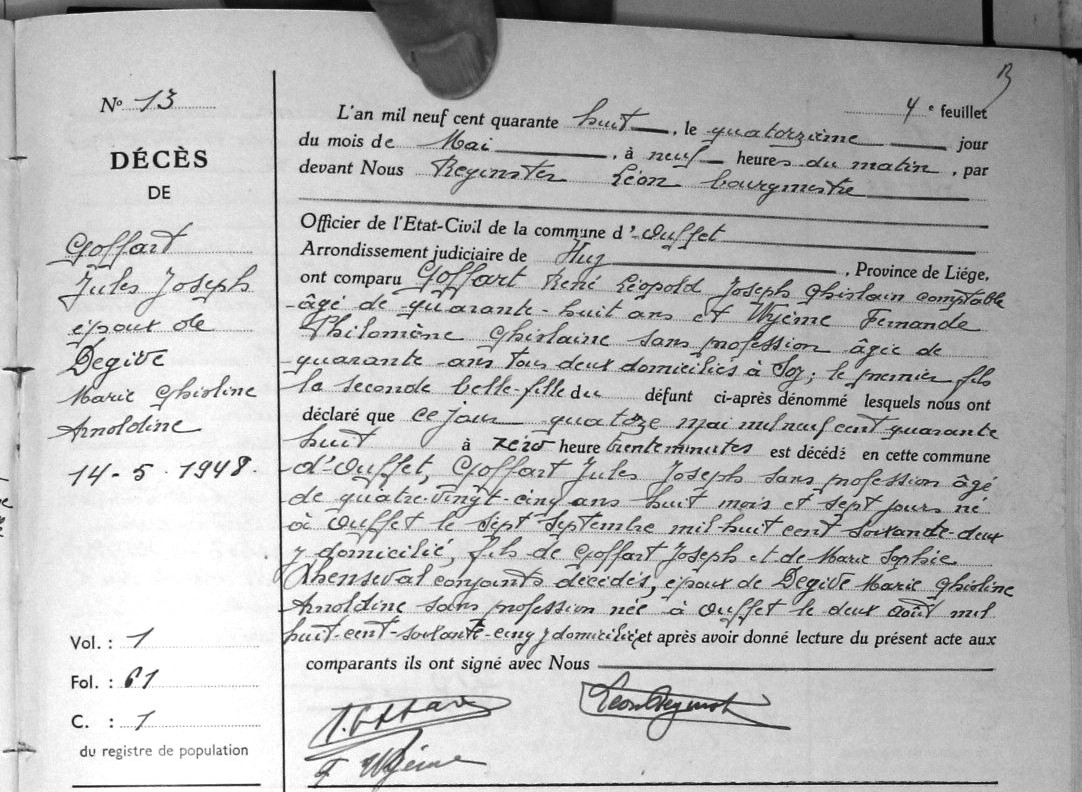 13
4e feuillet
No 13
DÉCÈS
DE
Goffart
Jules Joseph
époux de
Degive
Marie Ghisline
Arnoldine
14-5-1948.
Vol. : 1
Fol. : 61
C. : 1
du registre de population
L'an mil neuf cent quarante huit, le quatorzième jour
du mois de Mai, à neuf heures du matin, par
devant Nous Reginster Léon bourgmestre
Officier de l'Etat-Civil de la commune d'Ouffet
Arrondissement judiciaire de Huy, Province de Liége,
ont comparu Goffart René Léopold Joseph Ghislain comptable
âgé de quarante-huit ans et Wyème Fernande
Philomène Ghislaine sans profession âgée de
quarante ans tous deux domiciliés à Soy; le premier fils
la seconde belle-fille du défunt ci-après dénommé lesquels nous ont
déclaré que ce jour quatorze mai mil neuf cent quarante
huit à zéro heure trente minutes est décédé en cette commune
d'Ouffet, Goffart Jules Joseph sans profession âgé
de quatre-vingt-cinq ans huit mois et sept jours né
à Ouffet le sept septembre mil huit cent soixante-deux
y domicilié, fils de Goffart Joseph et de Marie Sophie
conjoints décédés, époux de Degive Marie Ghisline
Arnoldine sans profession née à Ouffet le deux août mil
huit-cent-soixante-cinq y domiciliée et après avoir donné lecture du présent acte aux
comparants ils ont signé avec Nous
F Wyème